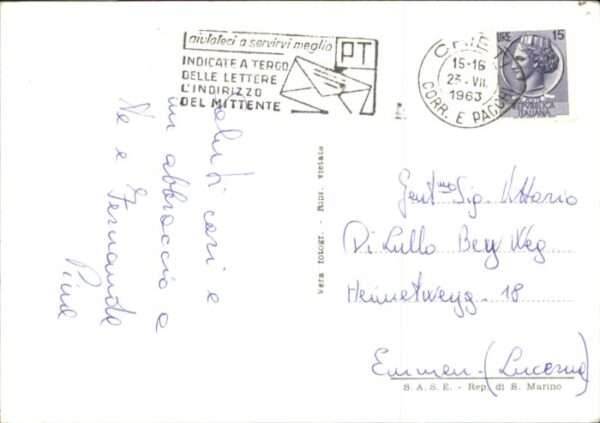 aiutateci a servirvi meglio
PT
INDICATE A TERGO
DELLE LETTERE
L'INDIRIZZO
DEL MITTENTE
15-16
23-VII.
1963
CORR. E PACCHI
LIRE 15
REPUBBLICA
ITALIANA
Saluti cari e
un abbraccio a
Te e Fernanda
Pina
Vera fotogr. - Ripr. vietata
Gent.mo Sig. Vittorio
Di Lullo Berg Weg
18
Emmen - (Lucerna)
S. A. S. E. - Rep. di S. Marino